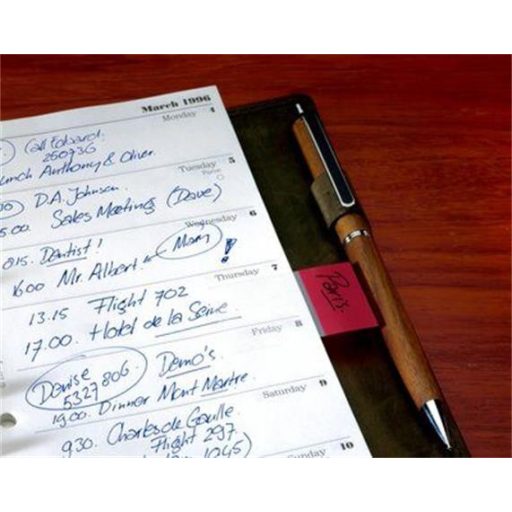 March 1996
Monday 4
Call Edward.
250736
unch Anthony & Oliver.
Tuesday 5
D.A. Johnson.
5.00. Sales Meetings (Dave)
Wednesday 6
815. Dentist!
1600 Mr. Albert. Mary !
Thursday 7
13.15 Flight 702
17.00. Hotel de la Seine.
Friday 8
Denise Demo's.
5327806
19.00. Dinner Mont Martre.
Saturday 9
930. Charles de Gaulle
Flight 297
1045)
Sunday 10
Paris.